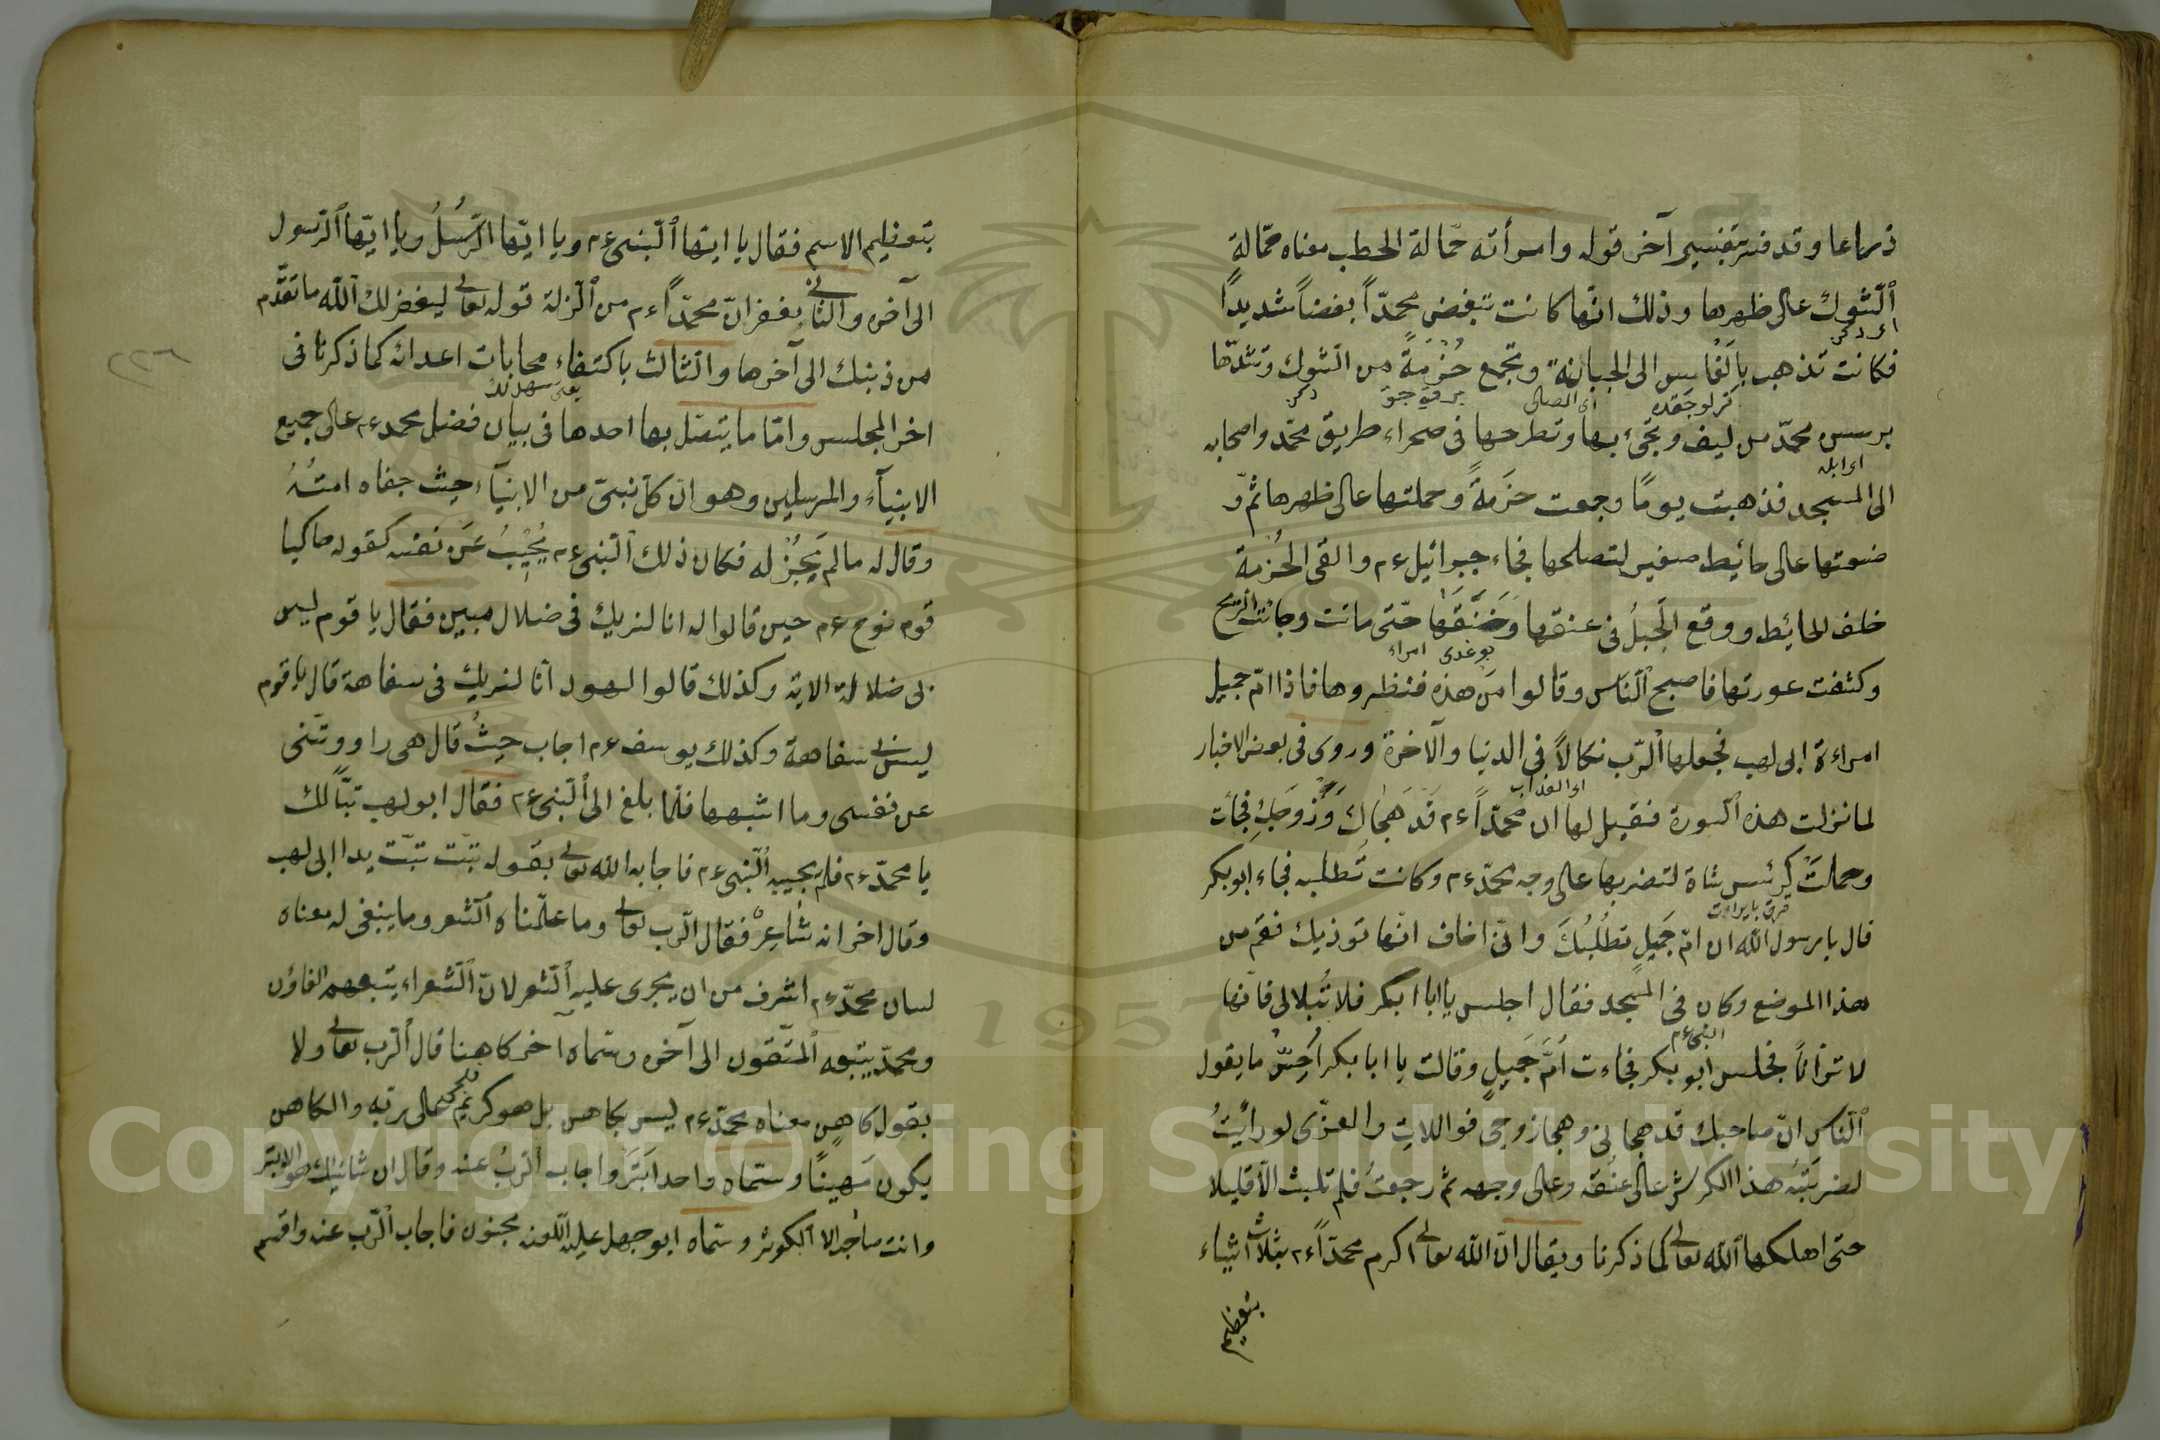 ذراعا وقد فسر بتفسير آخر قوله وامرأته حمّالة الحطب معناه حمّالة
ٱلشّوك على ظهرها وذلك انّها كانت تبغض محمّداً بغضاً شديداً
فكانت تذهب بالفأس الى الجبانة وتجمع حُزْمَةً من الشّوك وتشدّها
برسن محمّد من ليف وتجئ بها وتطرحها فى صحراء طريق محمّد واصحابه
الى المسجد فذهبت يومًا وجمعت حزمةً وحملتها على ظهرها ثمّ و
ضعتها على حائط صغير لتصلحها فجاء جبرائيل ءم والقى الحُزمة
خلف الحائط ووقع الحَبلُ فى عنقها وخَنَّقَهَا حتّى ماتت وجائت الرّيح
وكشفت عورتها فاصبح ٱلنّاس وقالوا مَن هذه فنظروها فاذا امّ جميل
امراءة ابى لهب فجعلها ٱلرّب نكالاً فى الدنيا والآخرة وروى فى بعض الاخبار
لما نزلت هذه ٱلسورة فقيل لها ان محمّداً ءم قَد هَجَاكَ وَزَوجَكِ فجأت
وحملَتْ كِرْئس شاة لتضربها على وجه محمّد ءم وكانت تُطلبه فجاء ابو بكر
قال يا رسول ٱللّه ان امّ جَمِيلٍ تطلُبُكَ وانّى اخاف انّها توذيك فقم من
هذا الموضع وكان فى المسجد فقال اجلس يا ابا ابكر فلا تُبلالى فانّها
لا ترانا فجلس ابو بكر فجاءت أمُّ جَمِيلٍ وقالت يا ابا بكر ما يقول
ٱلنّاس انّ صاحبك قد هجانى وهجا زوجى فواللات والعزّى لو رأيتُ
لضربَتْهُ هذا الكرش على عنُقه وعلى وجهه ثم رجعتُ فلم تلبث الّا قليلا
حتى اهلكها ٱللّه تعالى كما ذكرنا ويقال انّ ٱللّه تعالى اكرم محمّداً ءم بثلاث اشياء
بتعظيم
٢٢٦
بتعظيم الاسم فقال يا ايّها ٱلنّبىّ ءم ويا ايّها الرُّسُلُ ويا ايّها ٱلرّسول
الى آخره والثانى بغفران محمّداً ءم من ٱلزلة قوله تعالى ليغفر لك ٱللّه ما تقدّم
من ذنبك الى آخرها والثالث باكتفاء محابات اعدائه كما ذكرنا فى
اخر المجلس وامّا ما يتصل بها احدها فى بيان فضل محمد ءم على جميع
الانبيآء والمرسلين وهو انّ كلّ نبىّ من الانبيآء حيث جفاه امّتُهُ
وقال له ما لم يَجُزْ له فكان ذلك ٱلنّبىّ ءم يُجِيبُ عَن نفسه كقوله حاكيا
قوم نوح ءم حين قالوا له انا لنريك فى ضلال مبين فقال يا قوم ليس
بى ضلالة الآية وكذلك قالوا لهود انّا لنريك فى سفاهة قال يا قوم
ليس بى سفاهة وكذلك يوسف ءم اجاب حيثُ قال هى راودتنى
عن نفسى وما اشبهها فلمّا بلغ الى ٱلنّبىّ ءم فقال ابو لهب تبّاً لك
يا محمّد ءم فلم يجيبه ٱلنّبىّ ءم فاجابه اللّه تعالى بقوله تبّت تبّت يدا ابى لهب
وقال اخر انه شاعِرْ فقال الرّب تعالى وما علّمناه ٱلشعر وما ينبغى له معناه
لسان محمّد ءم اشرف من ان يجرى عليه ٱلشعر لانّ ٱلشعراء يتبعهم الغاؤن
ومحمّد يتبعه ٱلمتّقون الى آخره وسمّاه آخر كاهنا قال ٱلرب تعالى ولا
بقول كاهن معناه محمّد ءم ليس بكاهن بل هو كريم على ربّه والكاهن
يكون مَهينًا وسمّاه واحد ابتَرَ واجاب ٱلرّبُ عنه وقال ان شانئك هو الابتر
وانت صاحب الكوثر وسمّاه ابو جهل عليه اللّعنه مجنون فاجاب ٱلرّب عنه واقسم